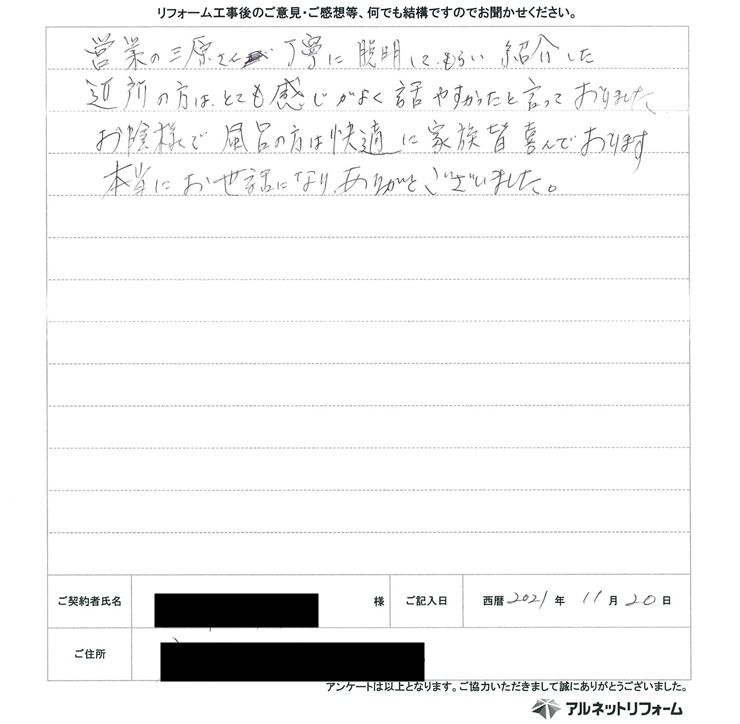 リフォーム工事後のご意見・ご感想等、何でも結構ですのでお聞かせください。
営業の三原さんが丁寧に説明してもらい紹介した
近所の方は、とても感じがよく話やすかったと言っておりました
お陰様で風呂の方は快適に家族皆喜んでおります
本当にお世話になり、ありがとうございました。
ご契約者氏名 様 ご記入日 西暦 2021 年 11 月 20 日
ご住所
アンケートは以上となります。ご協力いただきまして誠にありがとうございました。
アルネットリフォーム